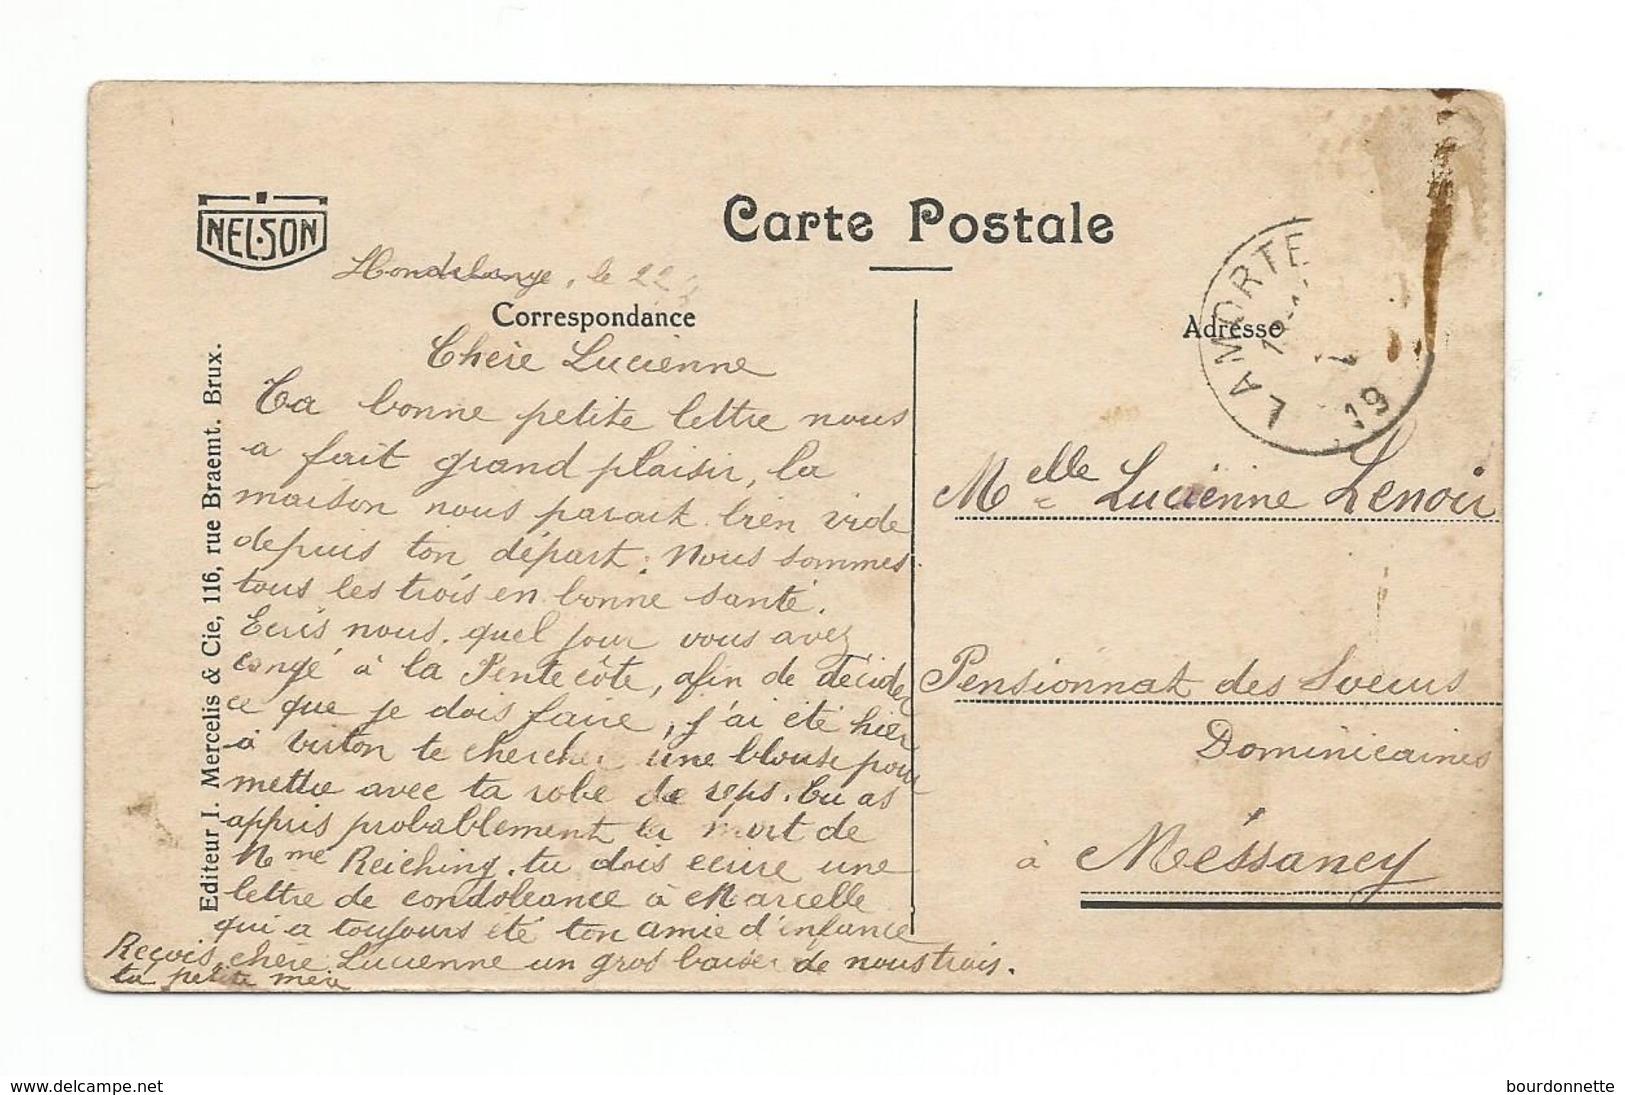 NELSON
Carte Postale
Hondelange, le 22
Correspondance
Adresse
LAMORTE
19
Editeur I. Mercelis & Cie, 116, rue Braemt. Brux.
Chère Lucienne
Ta bonne petite lettre nous
a fait grand plaisir, la
maison nous parait bien vide
depuis ton départ. Nous sommes
tous les trois en bonne santé.
Ecris nous. quel jour vous avez
congé à la Pentecôte, afin de décider
ce que je dois faire, j'ai été hier
à Virton te chercher une blouse pour
mettre avec ta robe de reps. Tu as
appris probablement la mort de
Mme Reiching. tu dois écrire une
lettre de condoléance à Marcelle
qui a toujours été ton amie d'enfance
Reçois, chère Lucienne un gros baiser de nous trois.
ta petite mère
Melle Lucienne Lenoir
Pensionnat des Soeurs
Dominicaines
à Méssancy
www.delcampe.net
bourdonnette